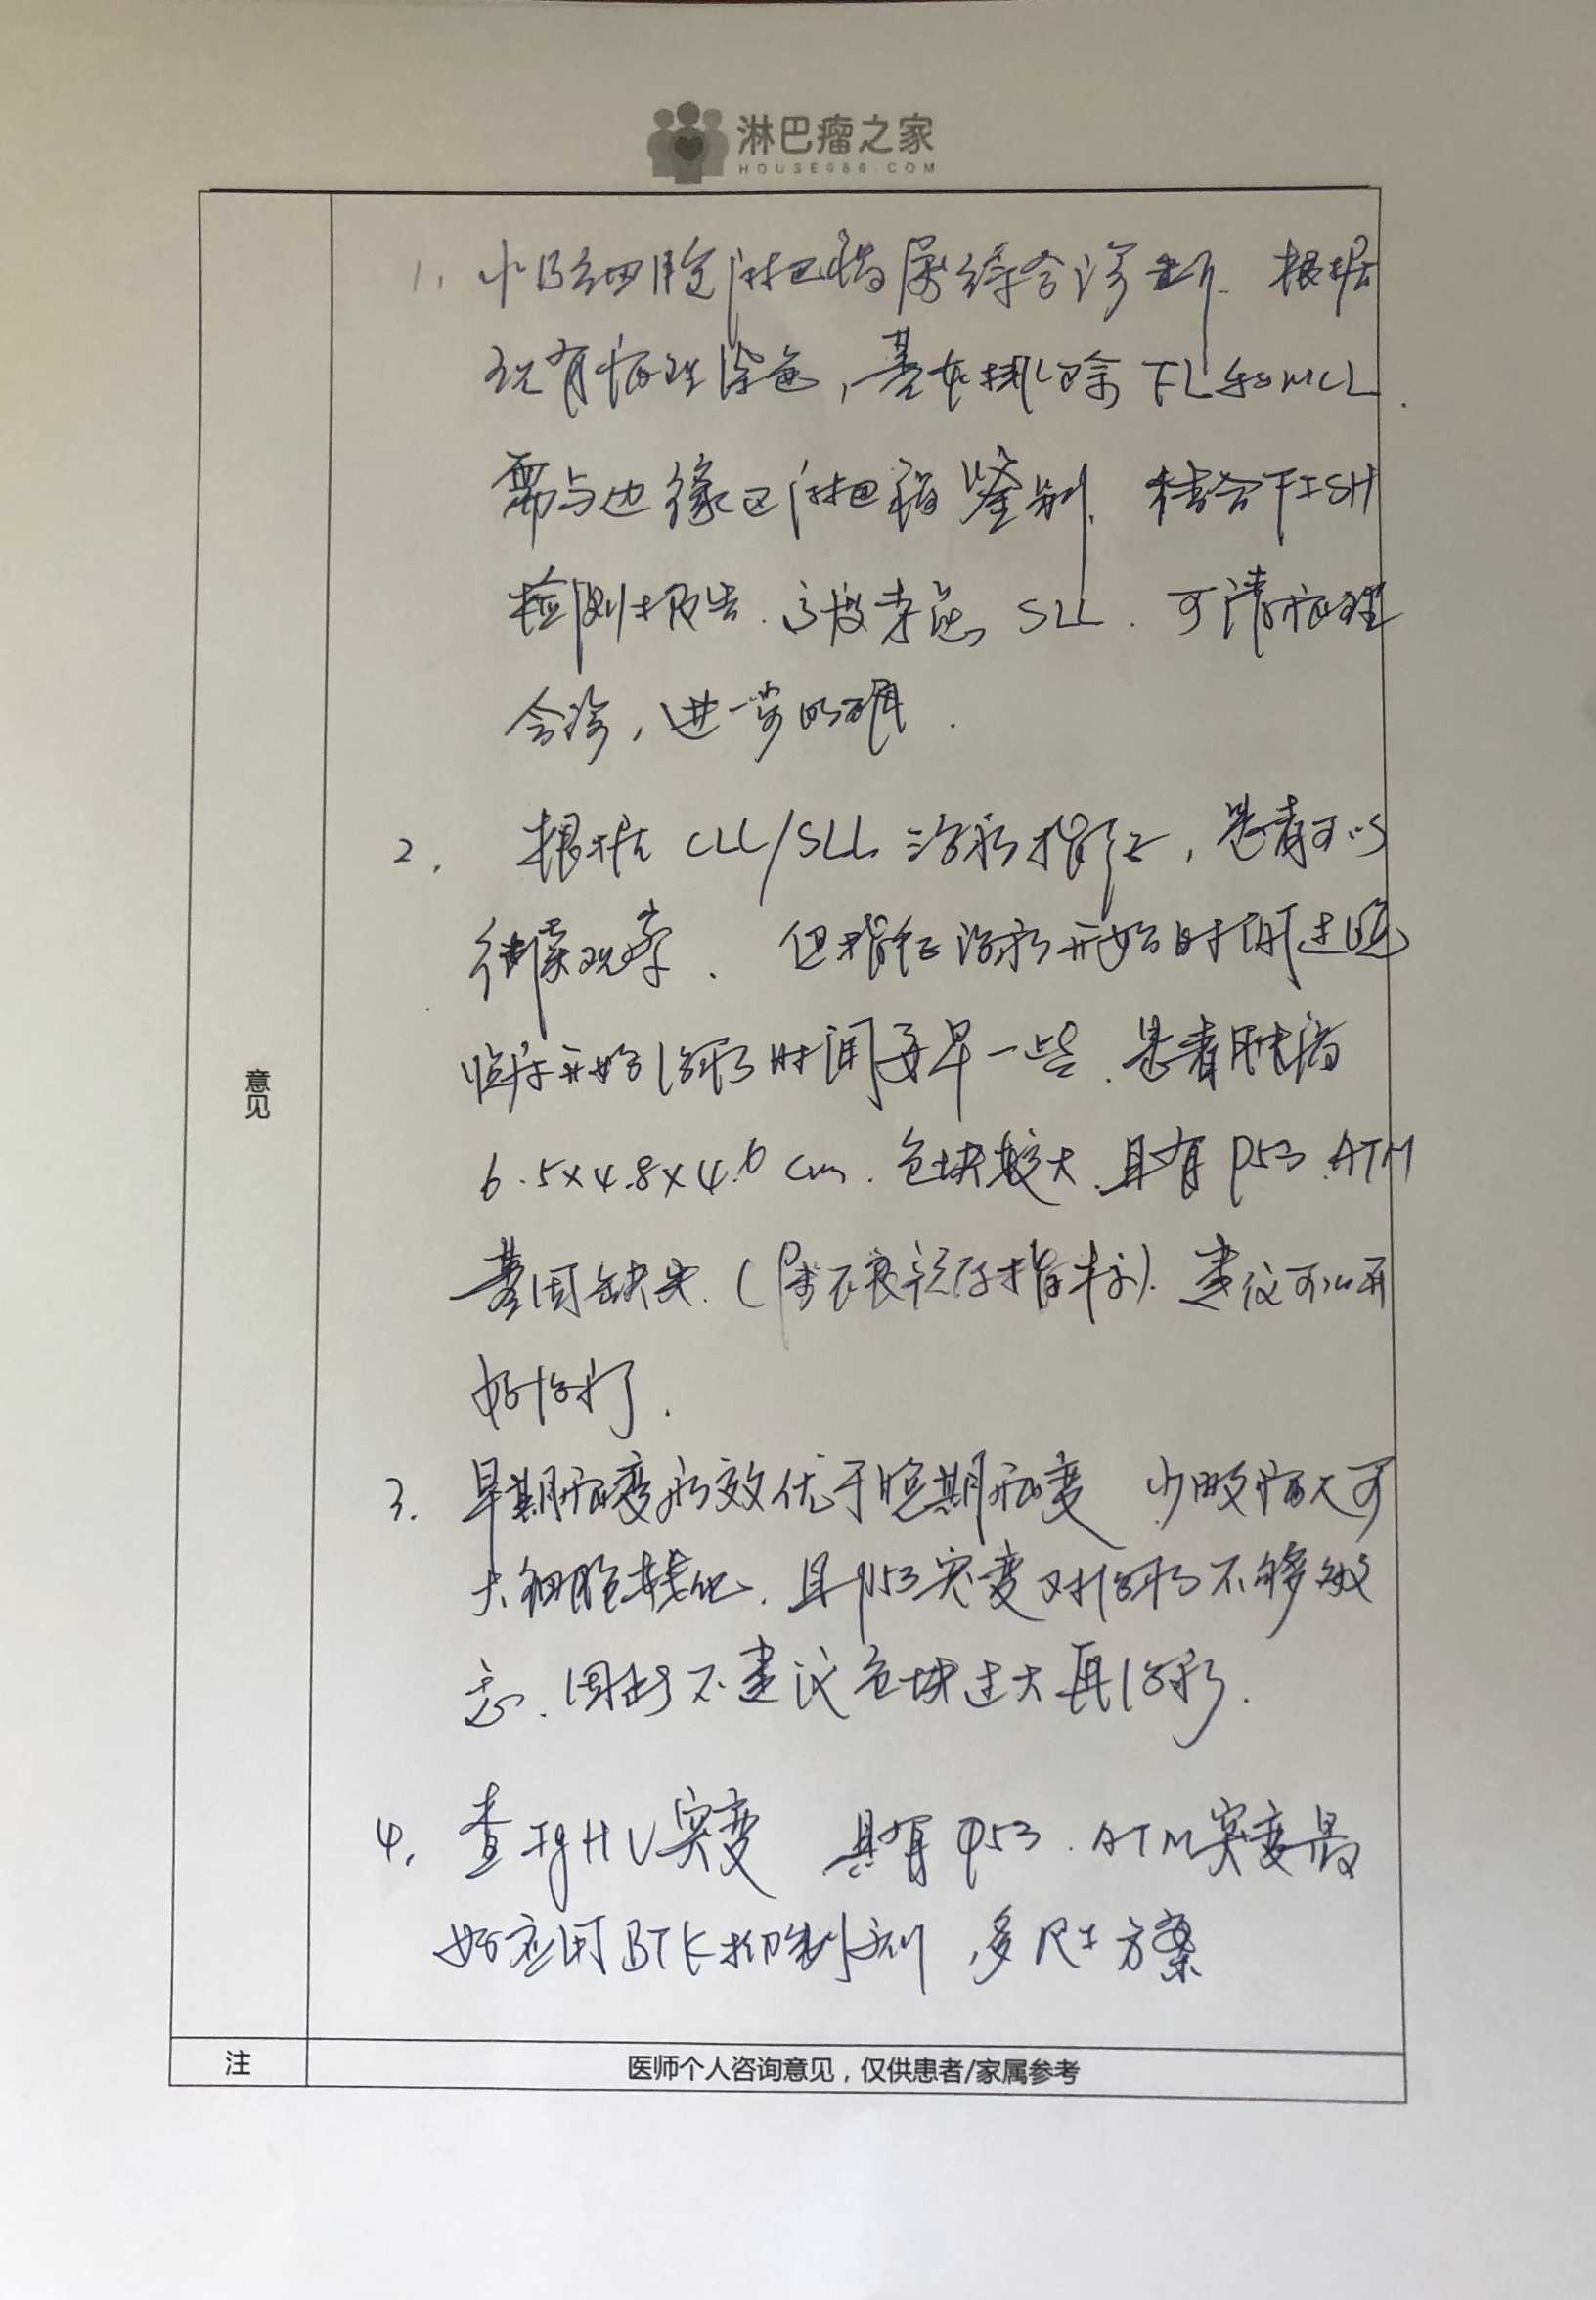 淋巴瘤之家
HOUSE086.COM
1. 小B细胞淋巴瘤属综合诊断. 根据
现有病理染色，基本排除 FL和MCL.
需与边缘区淋巴瘤鉴别. 结合FISH
检测报告. 高度考虑 SLL. 可请病理
会诊，进一步明确.
2. 根据 CLL/SLL 治疗指征，患者可以
继续观察. 但指征治疗开始时间过晚
临床开始治疗时间要早一些. 患者肿瘤
6.5×4.8×4.6 cm. 包块较大. 且有 p53. ATM
基因缺失. (属不良预后指标). 建议可以开
始治疗.
意见
3. 早期病变疗效优于晚期病变 少数病人可
大细胞转化. 且p53突变对治疗不够敏
感. 因此不建议包块过大再治疗.
4. 查IgHV突变 具有 p53. ATM突变最
好应用BTK抑制剂，方案
注
医师个人咨询意见，仅供患者/家属参考